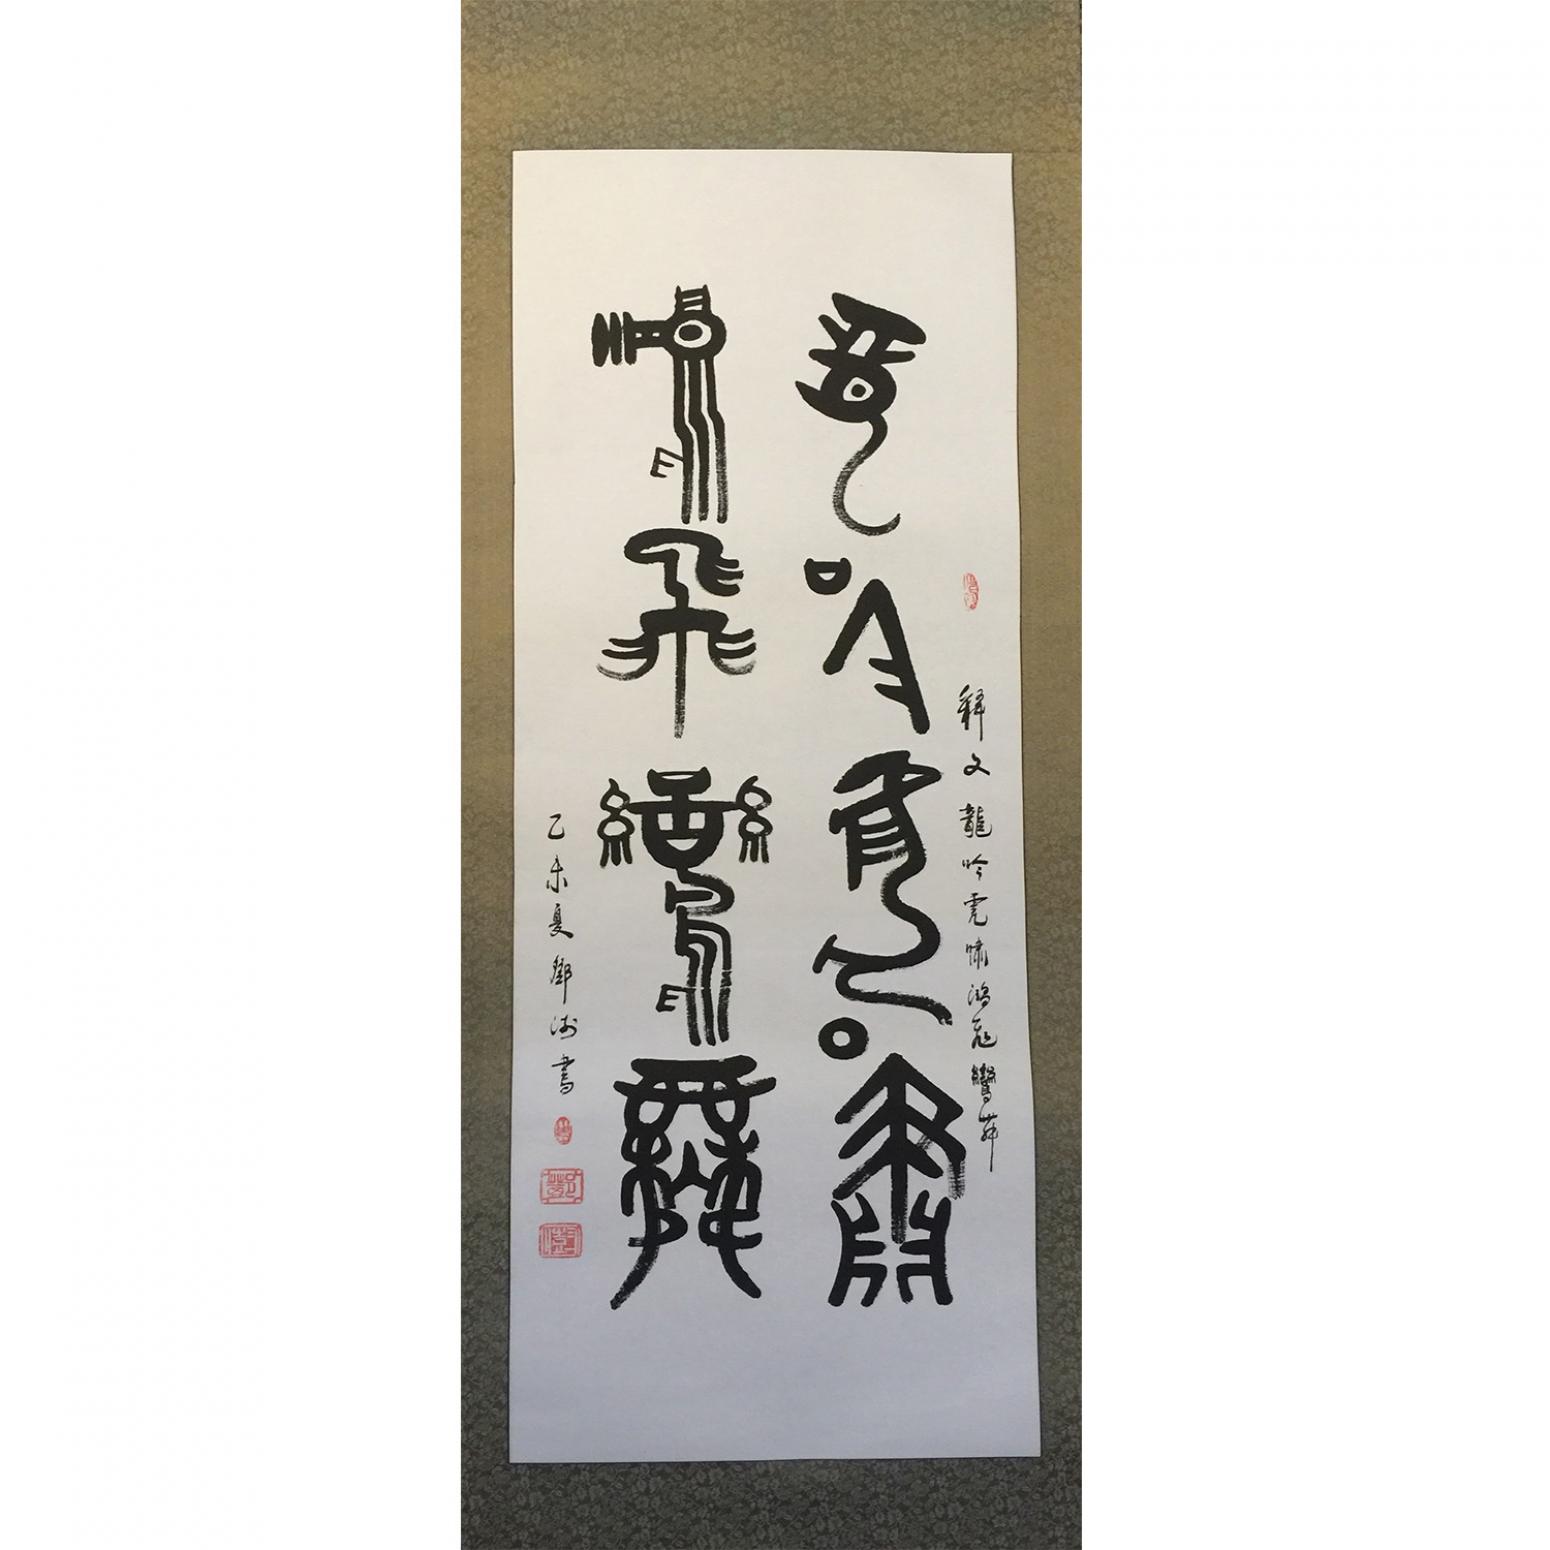 龍吟虎嘯
鴻飛鸞舞
釋文龍吟虎嘯鴻飛鸞舞
乙未夏鄧澍書